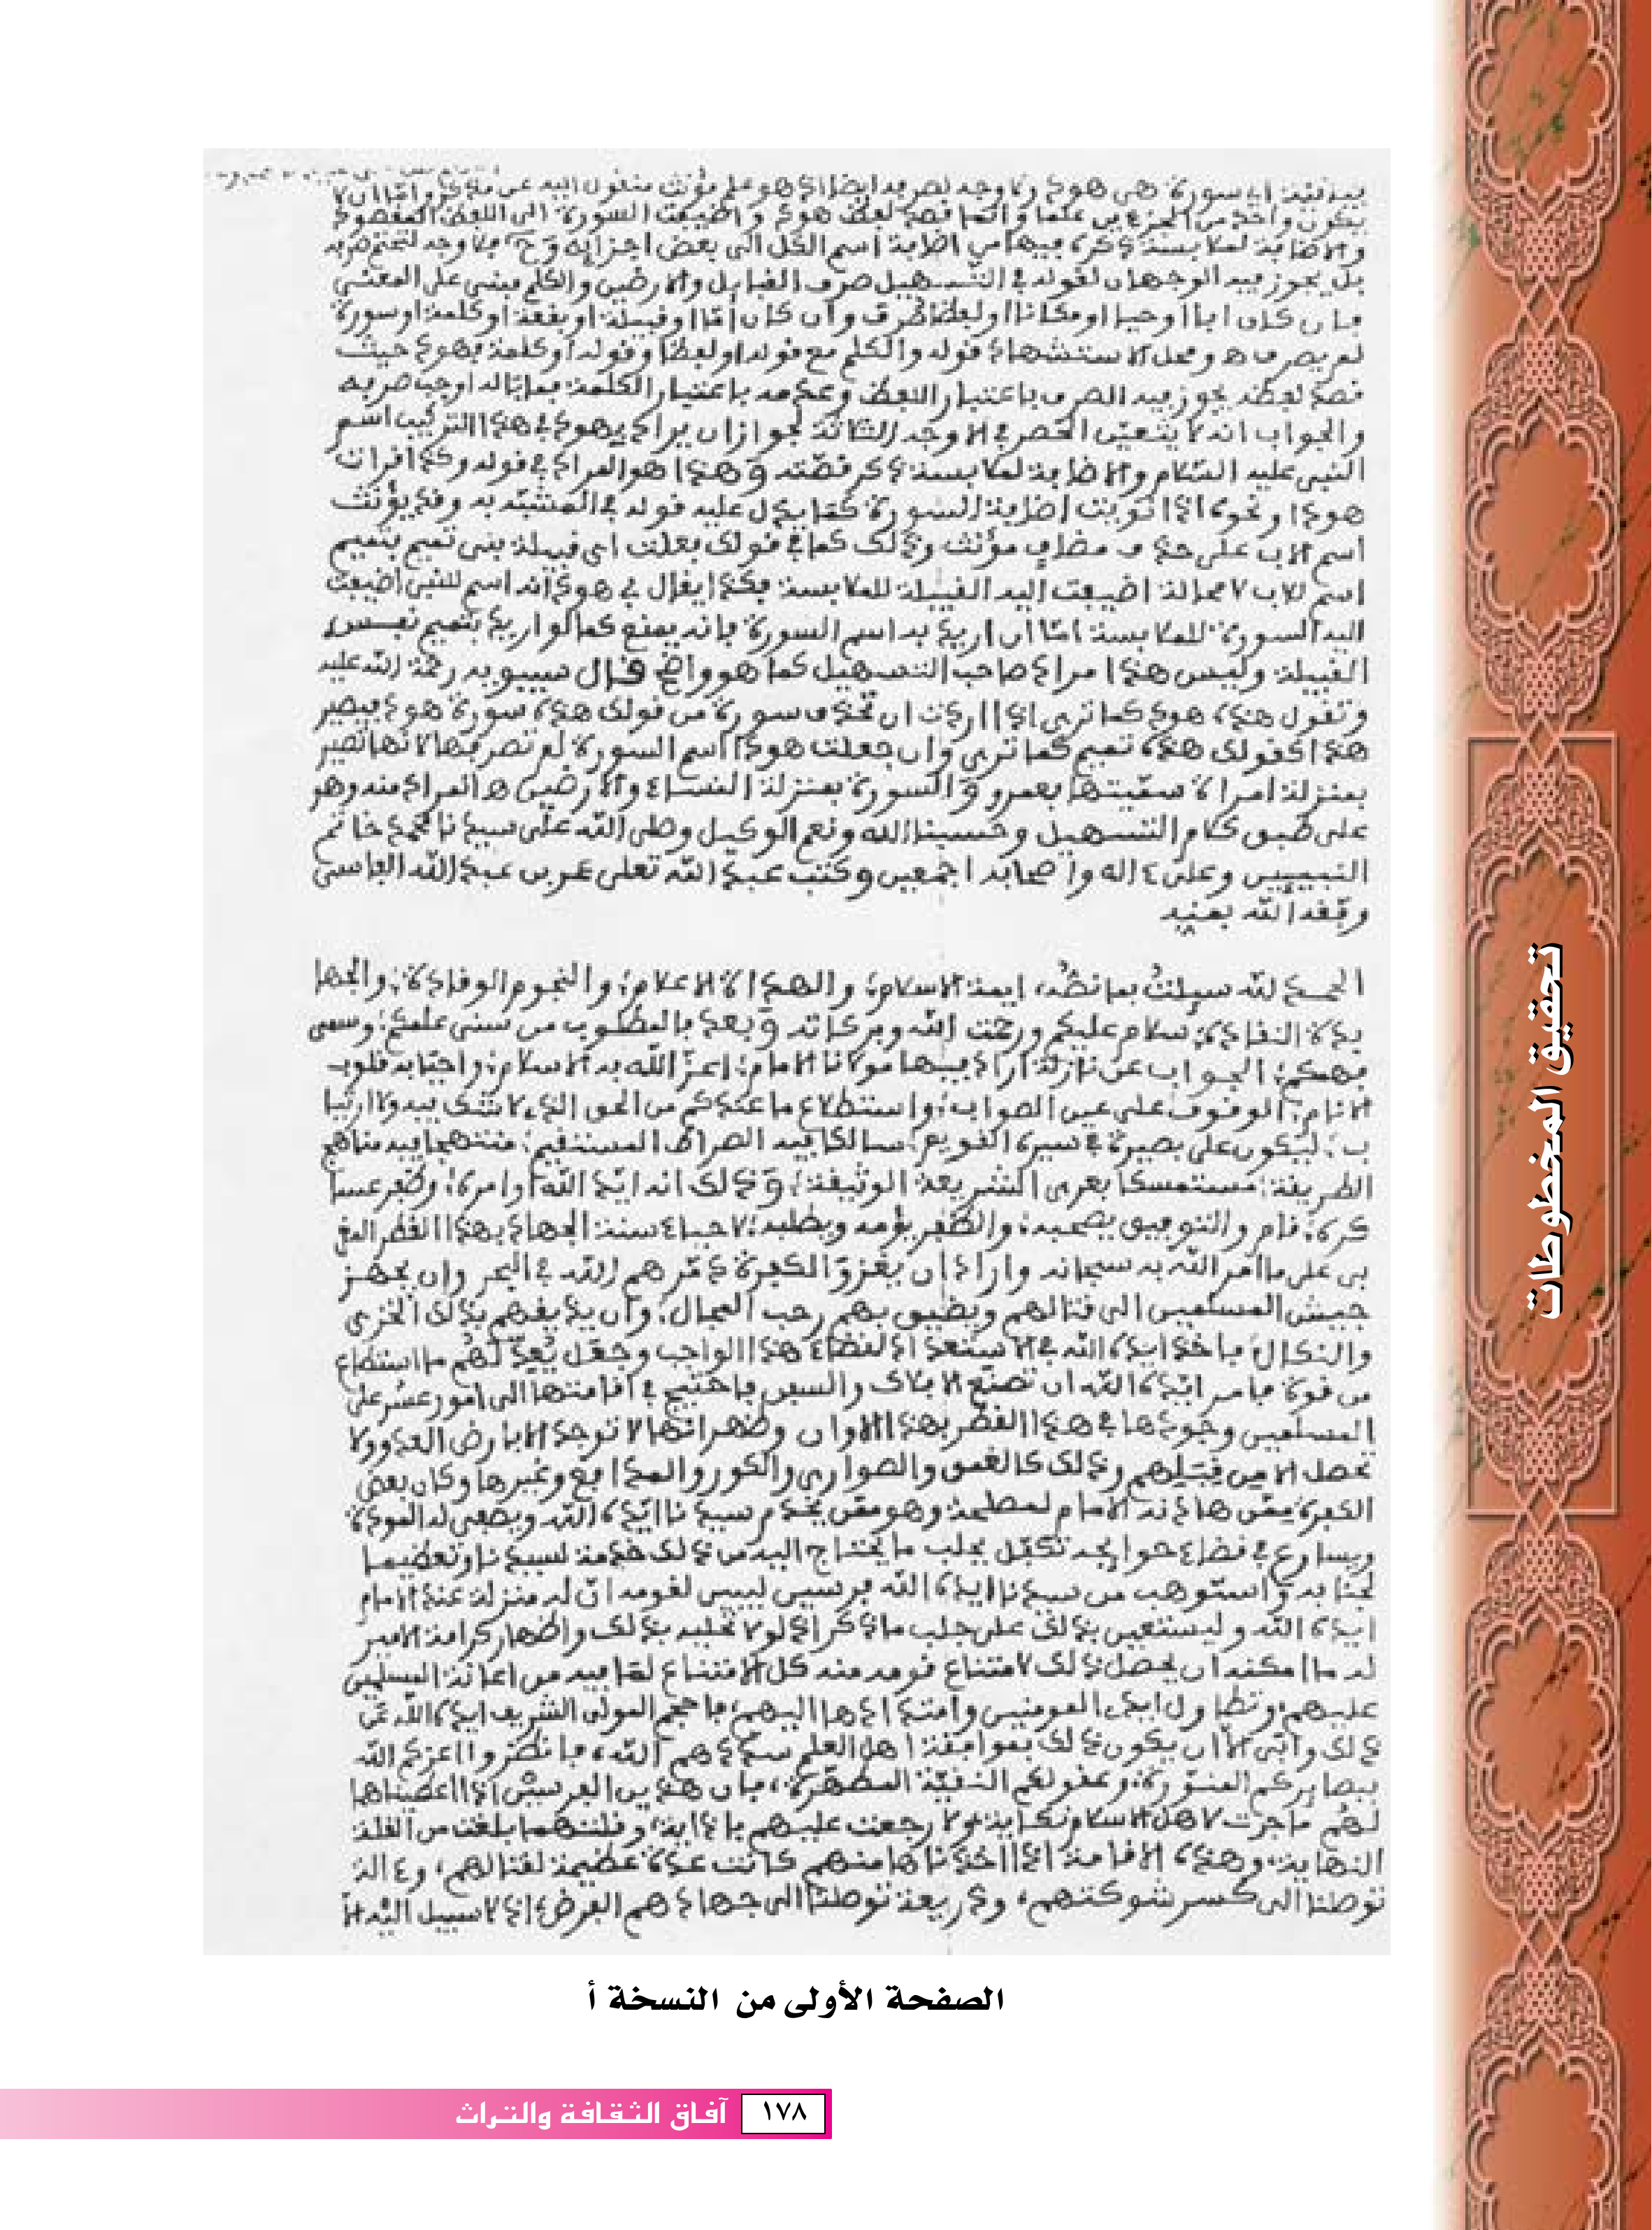 بيكون واحد من الجزءين علما وانما قصد لفظ هود واضيفت السورة الى اللفظ المقصود
والاضافة لملابسة ذكره فيها من اضافة اسم الكل الى بعض اجزايه وح فلا وجه لتحتم صرفه
بل يجوز فيه الوجهان لقوله في التسهيل صرف القبايل والارضين والكلم مبني على المعنى
فان كان ابا او حيا او مكانا او لفظا صرف وان كان اما او قبيلة او بقعة او كلمة او سورة
لم يصرف ه ومحل الاستشهاد قوله والكلم مع قوله او لفظا وقوله او كلمة فهود حيث
قصد لفظه يجوز فيه الصرف باعتبار اللفظ وعدمه باعتبار الكلمة فما باله اوجب صرفه
والجواب انه لا يتعين الحصر في الاوجه الثلاثة لجواز ان يراد بهود في هذا التركيب اسم
النبي عليه السلام والاضافة لملابسة ذكر قصته وهذا هو المراد في قوله وكذا قرات
هودا ونحوه اذا نويت اضافة السورة كما يدل عليه قوله في المشبه به وقد يؤنث
اسم الاب على حذف مضاف مؤنث وذلك كما في قولك بعلت اي قبيلة بني تميم فتميم
اسم للاب لا محالة اضيفت اليه القبيلة للملابسة فكذا يقال في هود انه اسم للنبي اضيفت
اليه السورة للملابسة اما ان اريد به اسم السورة فانه يمنع كما لو اريد بتميم نفس
القبيلة وليس هذا مراد صاحب التسهيل كما هو واضح قال سيبويه رحمة الله عليه
وتقول هذه هود كما ترى اذا اردت ان تحذف سورة من قولك هذه سورة هود فيصير
هذا كقولك هذه تميم كما ترى وان جعلت هودا اسم السورة لم تصرفها لانها تصير
بمنزلة امراة سميتها بعمرو والسورة بمنزلة النساء والارضين ه المراد منه وهو
على طبق كلام التسهيل وحسبنا الله ونعم الوكيل وصلى الله على سيدنا محمد خاتم
النبيين وعلى ءاله واصحابه اجمعين وكتب عبد الله تعلى عمر بن عبد الله الفاسي
وفقه الله بمنه
الحمد لله سيلت بما نصه ايمة الاسلام؛ والهداة الاعلام؛ والنجوم الوقادة؛ والجها
بذة النقادة؛ سلام عليكم ورحمت الله وبركاته وبعد فالمطلوب من سني علمكم؛ وسمى
فهمكم؛ الجواب عن نازلة اراد فيها مولانا الامام؛ اعز الله به الاسلام؛ واحيا به قلوب
الانام؛ الوقوف على عين الصواب؛ واستطلاع ما عندكم من الحق الذي لا شك فيه ولا ارتيا
ب؛ ليكون على بصيرة في سيره القويم؛ سالكا فيه الصراط المستقيم؛ منتهجا فيه مناهج
الطريقة؛ مستمسكا بعرى الشريعة الوثيقة؛ وذلك انه ايد الله اوامره؛ وظفر عسا
كره؛ قام والتوفيق يصحبه؛ والظفر يؤمه ويطلبه؛ لاحياء سنة الجهاد بهذا القطر المغر
بي على ما امر الله به سبحانه واراد ان يغزو الكفرة دمرهم الله في البحر وان يجهز
جيش المسلمين الى قتالهم ويضيق بهم رحب المجال؛ وان يذيقهم بذلك الخزي
والنكال؛ فاخذ ايده الله في الاستعداد لقضاء هذا الواجب وجعل يعد لهم ما استطاع
من قوة فامر ايده الله ان تصنع الافلاك والسفن فاحتيج في اقامتها الى امور عسر على
المسلمين وجودها في هذا القطر بهذا الاوان وظهر انها لا توجد الا بارض العدو ولا
تحصل الا من قبلهم وذلك كالقمن والصواري والكور والمدافع وغيرها وكان بعض
الكفرة ممن هادنه الامام لمصلحة وهو ممن يخدم سيدنا ايده الله ويصفي له المودة
ويسارع في قضاء حوايجه تكفل بجلب ما يحتاج اليه من ذلك خدمة لسيدنا وتعظيما
لجنابه واستوهب من سيدنا ايده الله فرسين ليبين لقومه ان له منزلة عند الامام
ايده الله وليستعين بذلك على جلب ما ذكر اذ لولا تحليه بذلك واظهار كرامة الامير
له ما امكنه ان يحصل ذلك لامتناع قومه منه كل الامتناع لما فيه من اعانة المسلمين
عليهم؛ وتطاول ايدي المومنين وامتدادها اليهم؛ فاحجم المولى الشريف ايده الله عن
ذلك وابى الا ان يكون ذلك بموافقة اهل العلم سددهم الله، فانظروا اعزكم الله
ببصايركم المنورة، وعقولكم النقية المطهرة، فان هذين الفرسين اذا اعطيناها
لهم ما جرت لاهل الاسلام نكاية، ولا رجعت عليهم باذاية، وقلتهما بلغت من القلة
النهاية، وهذه الاقامة اذا اخذناها منهم كانت عدة عظيمة لقتالهم، وءالة
توصلنا الى كسر شوكتهم، وذريعة توصلنا الى جهادهم الفرض؛ اذ لا سبيل اليه الا
الصفحة الأولى من النسخة أ
تحقيق المخطوطات
١٧٨ آفاق الثقافة والتراث